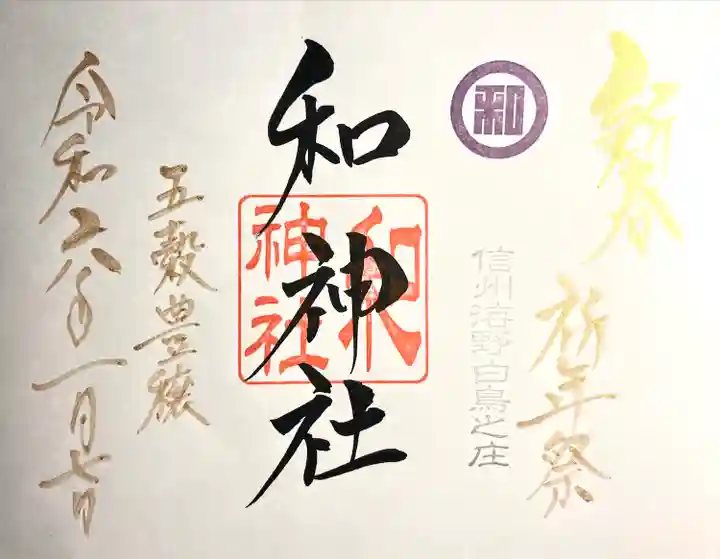 新春
祈年祭
和
信州海野白鳥之庄
和神社
和
神社
五穀豊穣
令和六年一月七日